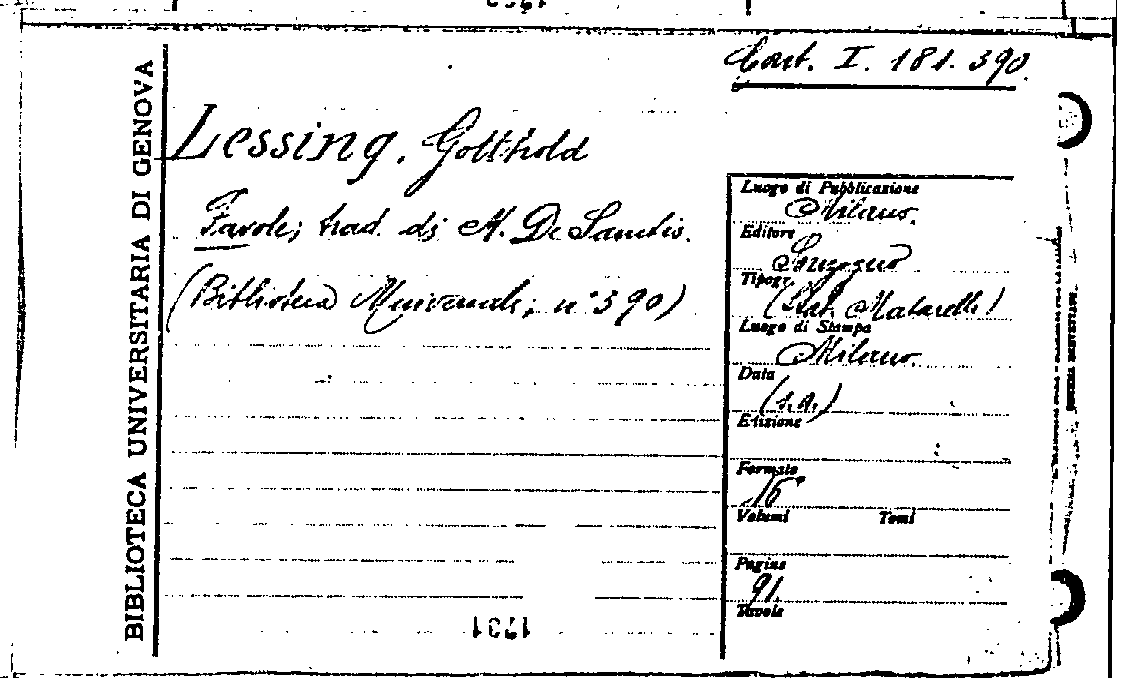 Cart. I. 181. 390.
BIBLIOTECA UNIVERSITARIA DI GENOVA
Lessing, Gotthold
Favole; trad. di M. De Sanctis.
(Biblioteca Universale; n° 390)
Luogo di Pubblicazione
Milano.
Editore
Sonzogno
Tipogr.
(Stab. Matarelli)
Luogo di Stampa
Milano.
Data
(s.a.)
Edizione
Formato
16°
Volumi Tomi
Pagine
91.
Tavole
1731